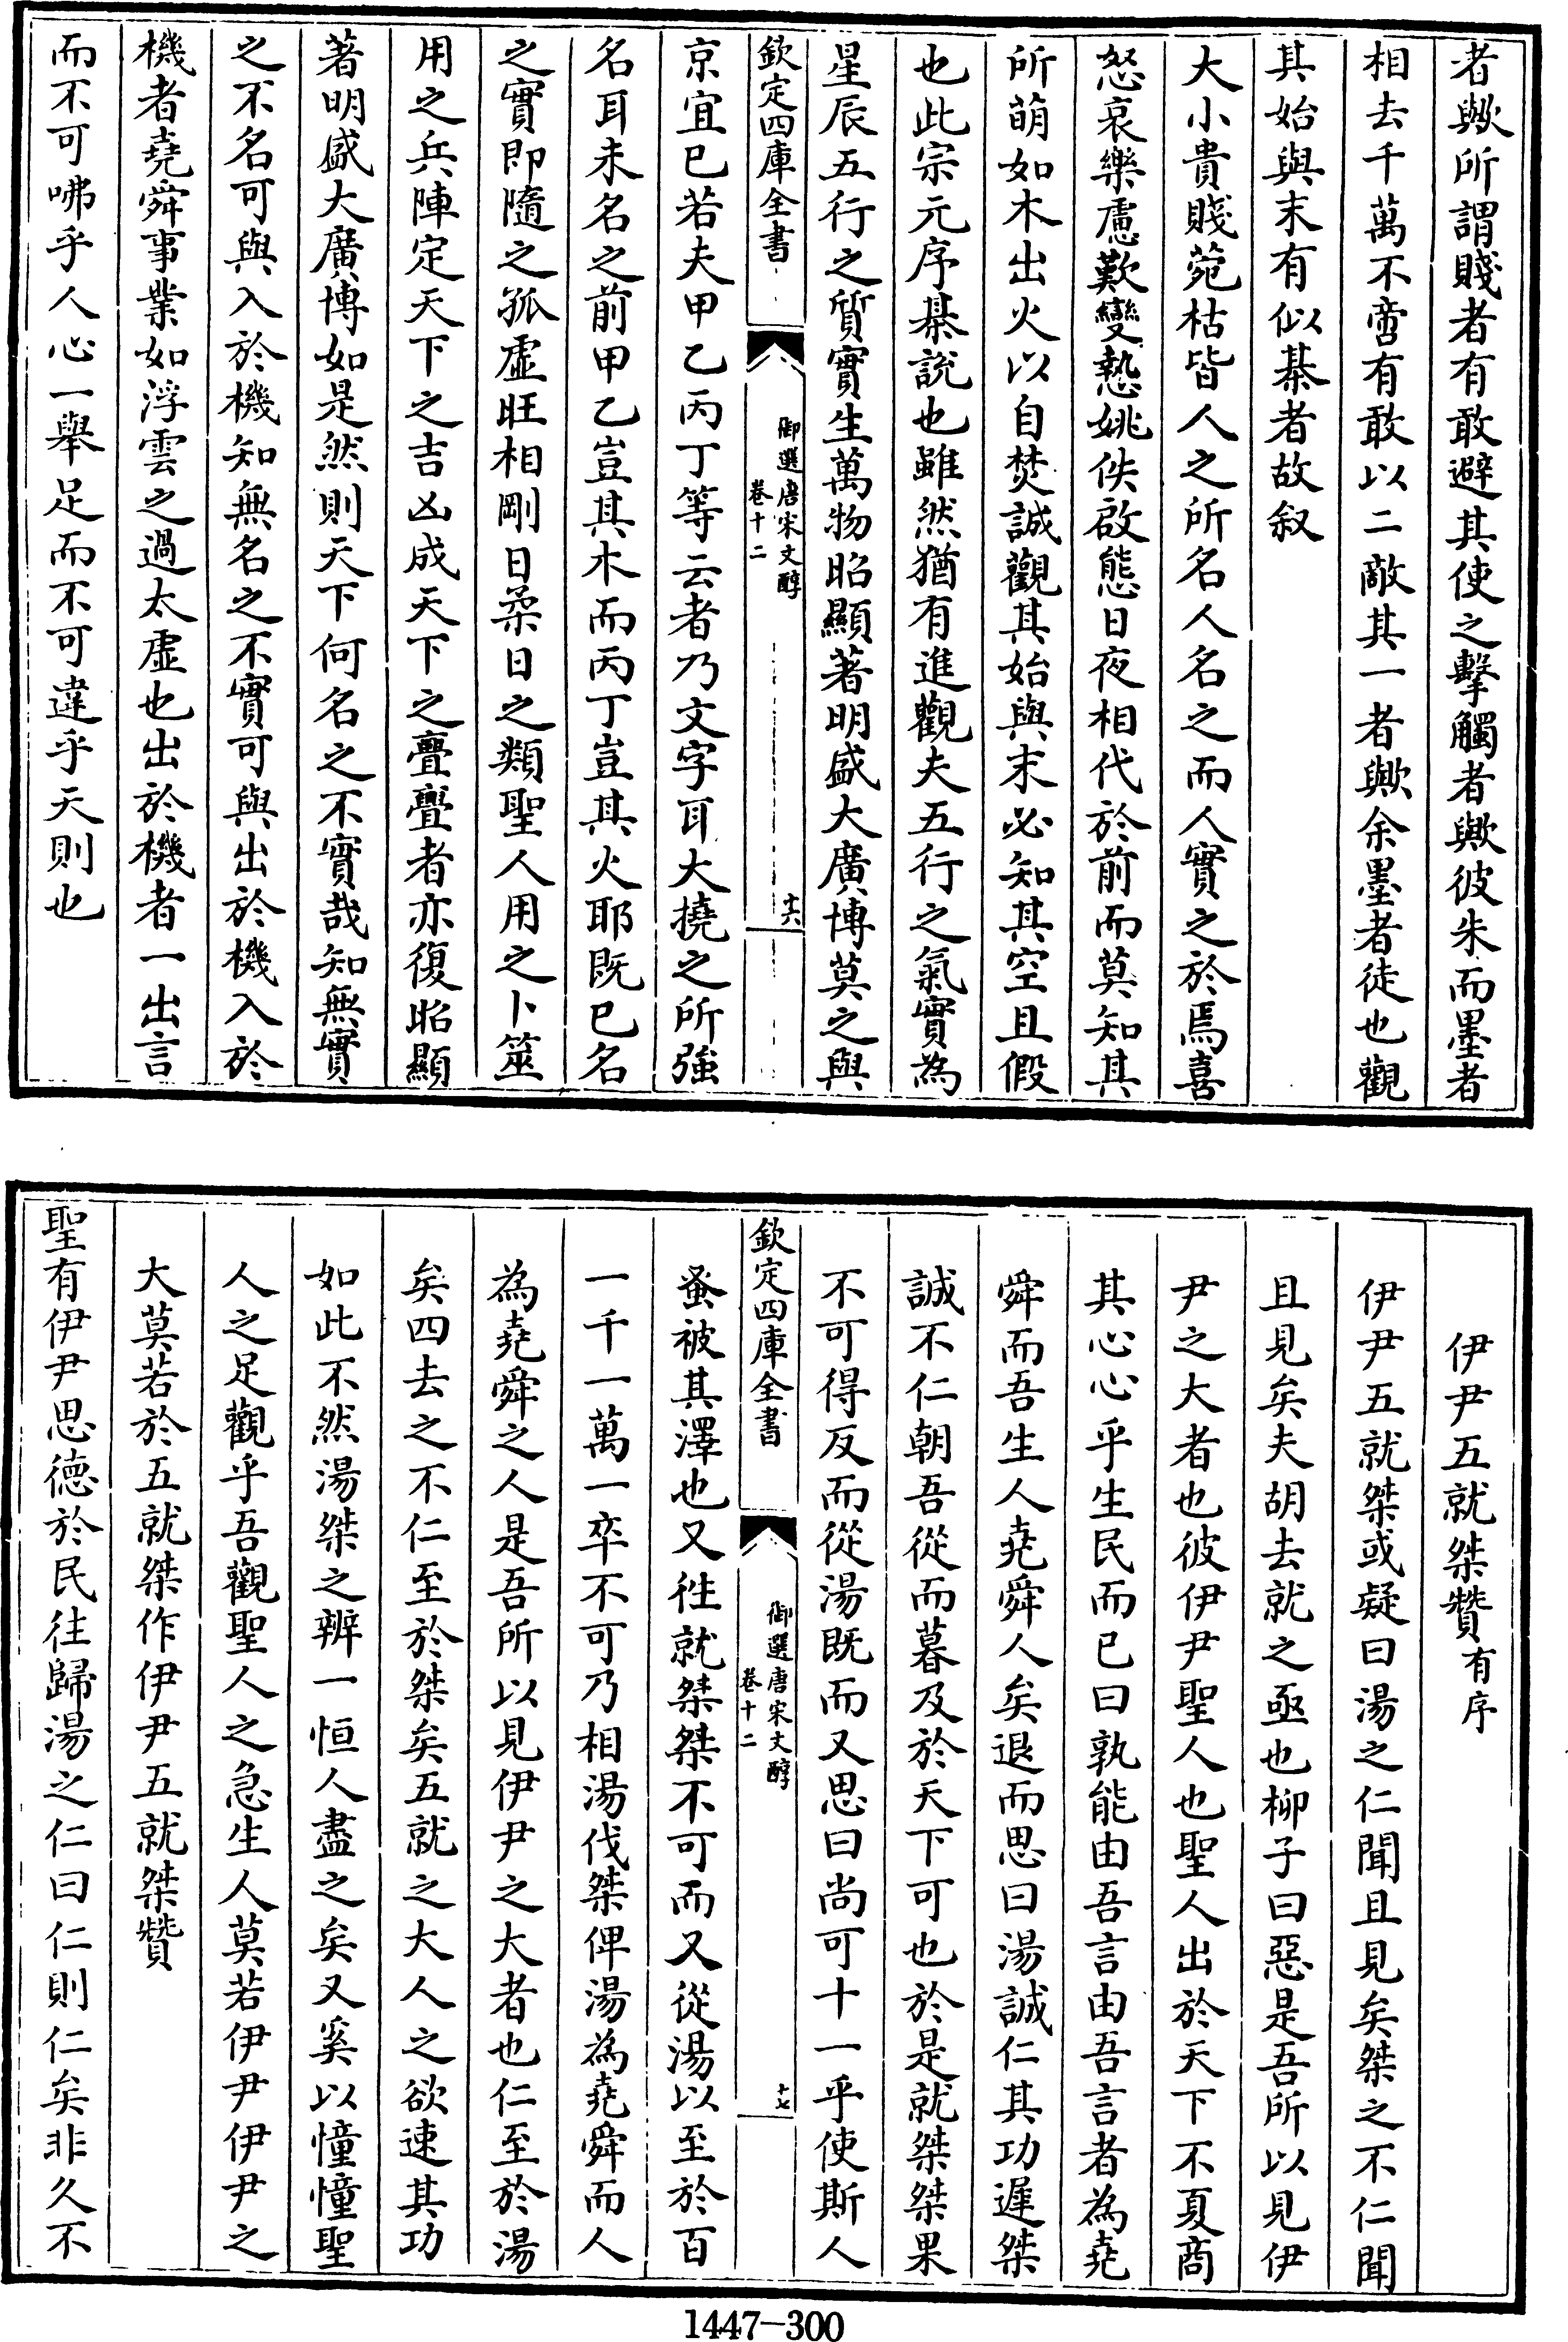 者歟所謂賤者有敢避其使之擊觸者歟彼朱而墨者
相去千萬不啻有敢以二敵其一者歟余墨者徒也觀
其始與末有似棊者故叙
大小貴賤菀枯皆人之所名人名之而人實之於焉喜
怒哀樂慮歎變慹姚佚啟態日夜相代於前而莫知其
所萌如木出火以自焚誠觀其始與末必知其空且假
也此宗元序棊說也雖然猶有進觀夫五行之氣實為
星辰五行之質實生萬物昭顯著明盛大廣博莫之與
欽定四庫全書
御選唐宋文醇
卷十二
十六
京宜已若夫甲乙丙丁等云者乃文字耳大撓之所強
名耳未名之前甲乙豈其木而丙丁豈其火耶既已名
之實即隨之孤虛旺相剛日柔日之類聖人用之卜筮
用之兵陣定天下之吉凶成天下之亹亹者亦復昭顯
著明盛大廣博如是然則天下何名之不實哉知無實
之不名可與入於機知無名之不實可與出於機入於
機者堯舜事業如浮雲之過太虛也出於機者一出言
而不可咈乎人心一舉足而不可違乎天則也
伊尹五就桀贊有序
伊尹五就桀或疑曰湯之仁聞且見矣桀之不仁聞
且見矣夫胡去就之亟也柳子曰惡是吾所以見伊
尹之大者也彼伊尹聖人也聖人出於天下不夏商
其心心乎生民而已曰孰能由吾言由吾言者為堯
舜而吾生人堯舜人矣退而思曰湯誠仁其功遲桀
誠不仁朝吾從而暮及於天下可也於是就桀桀果
不可得反而從湯既而又思曰尚可十一乎使斯人
欽定四庫全書
御選唐宋文醇
卷十二
十七
蚤被其澤也又徃就桀桀不可而又從湯以至於百
一千一萬一卒不可乃相湯伐桀俾湯為堯舜而人
為堯舜之人是吾所以見伊尹之大者也仁至於湯
矣四去之不仁至於桀矣五就之大人之欲速其功
如此不然湯桀之辨一恒人盡之矣又奚以憧憧聖
人之足觀乎吾觀聖人之急生人莫若伊尹伊尹之
大莫若於五就桀作伊尹五就桀贊
聖有伊尹思德於民往歸湯之仁曰仁則仁矣非久不
1447-300